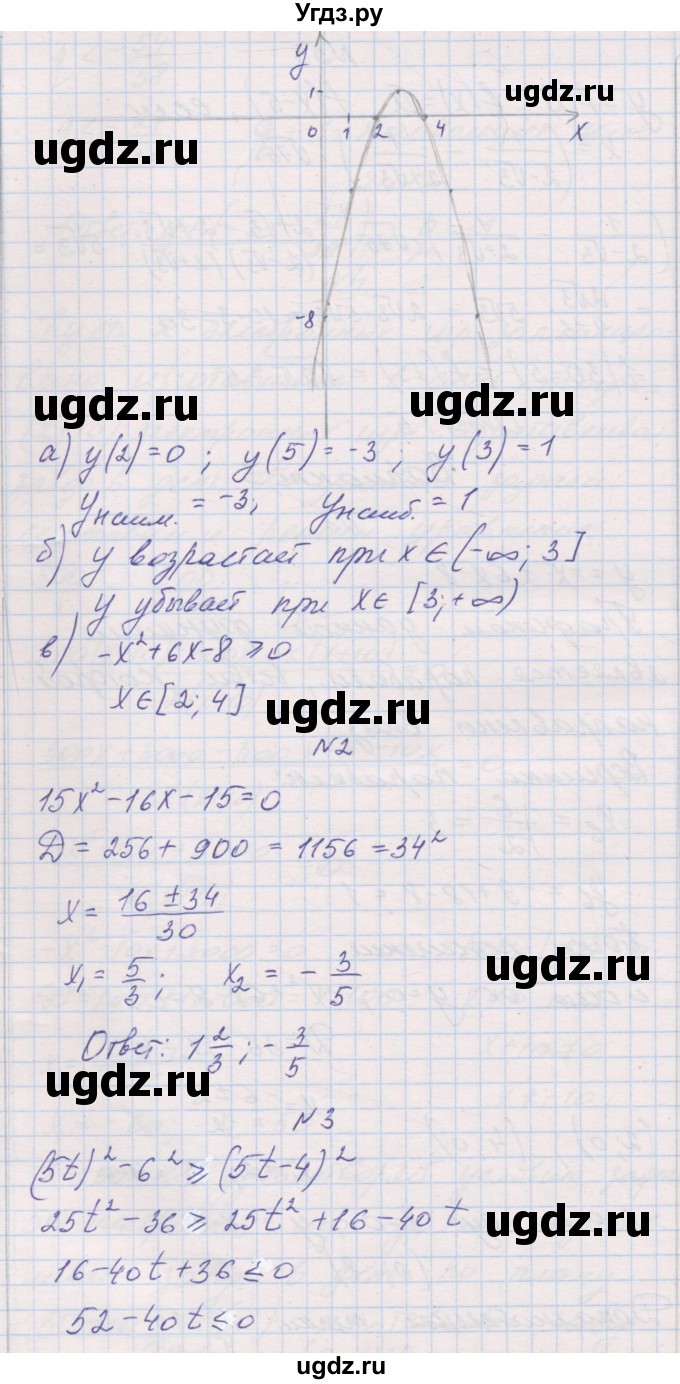 Угдз.ру
y
ugdz.ru
1
0 1 2 4 x
ugdz.ru
-8
ugdz.ru
ugdz.ru
а) y(2)=0 ; y(5)=-3 ; y(3)=1
yнаим. = -3; yнаиб. = 1
б) y возрастает при x∈(-∞; 3]
y убывает при x∈[3;+∞)
в) -x²+6x-8≥0
x∈[2; 4]
ugdz.ru
N2
15x²-16x-15=0
D = 256+ 900 = 1156 = 34²
x = (16±34)/30
x₁ = 5/3; x₂ = -3/5
ugdz.ru
Ответ: 1 2/3; -3/5
ugdz.ru
N3
(5t)²-6² ≥ (5t-4)²
25t²-36 ≥ 25t²+16-40t
ugdz.ru
16-40t+36≤0
52-40t≤0
ugdz.ru